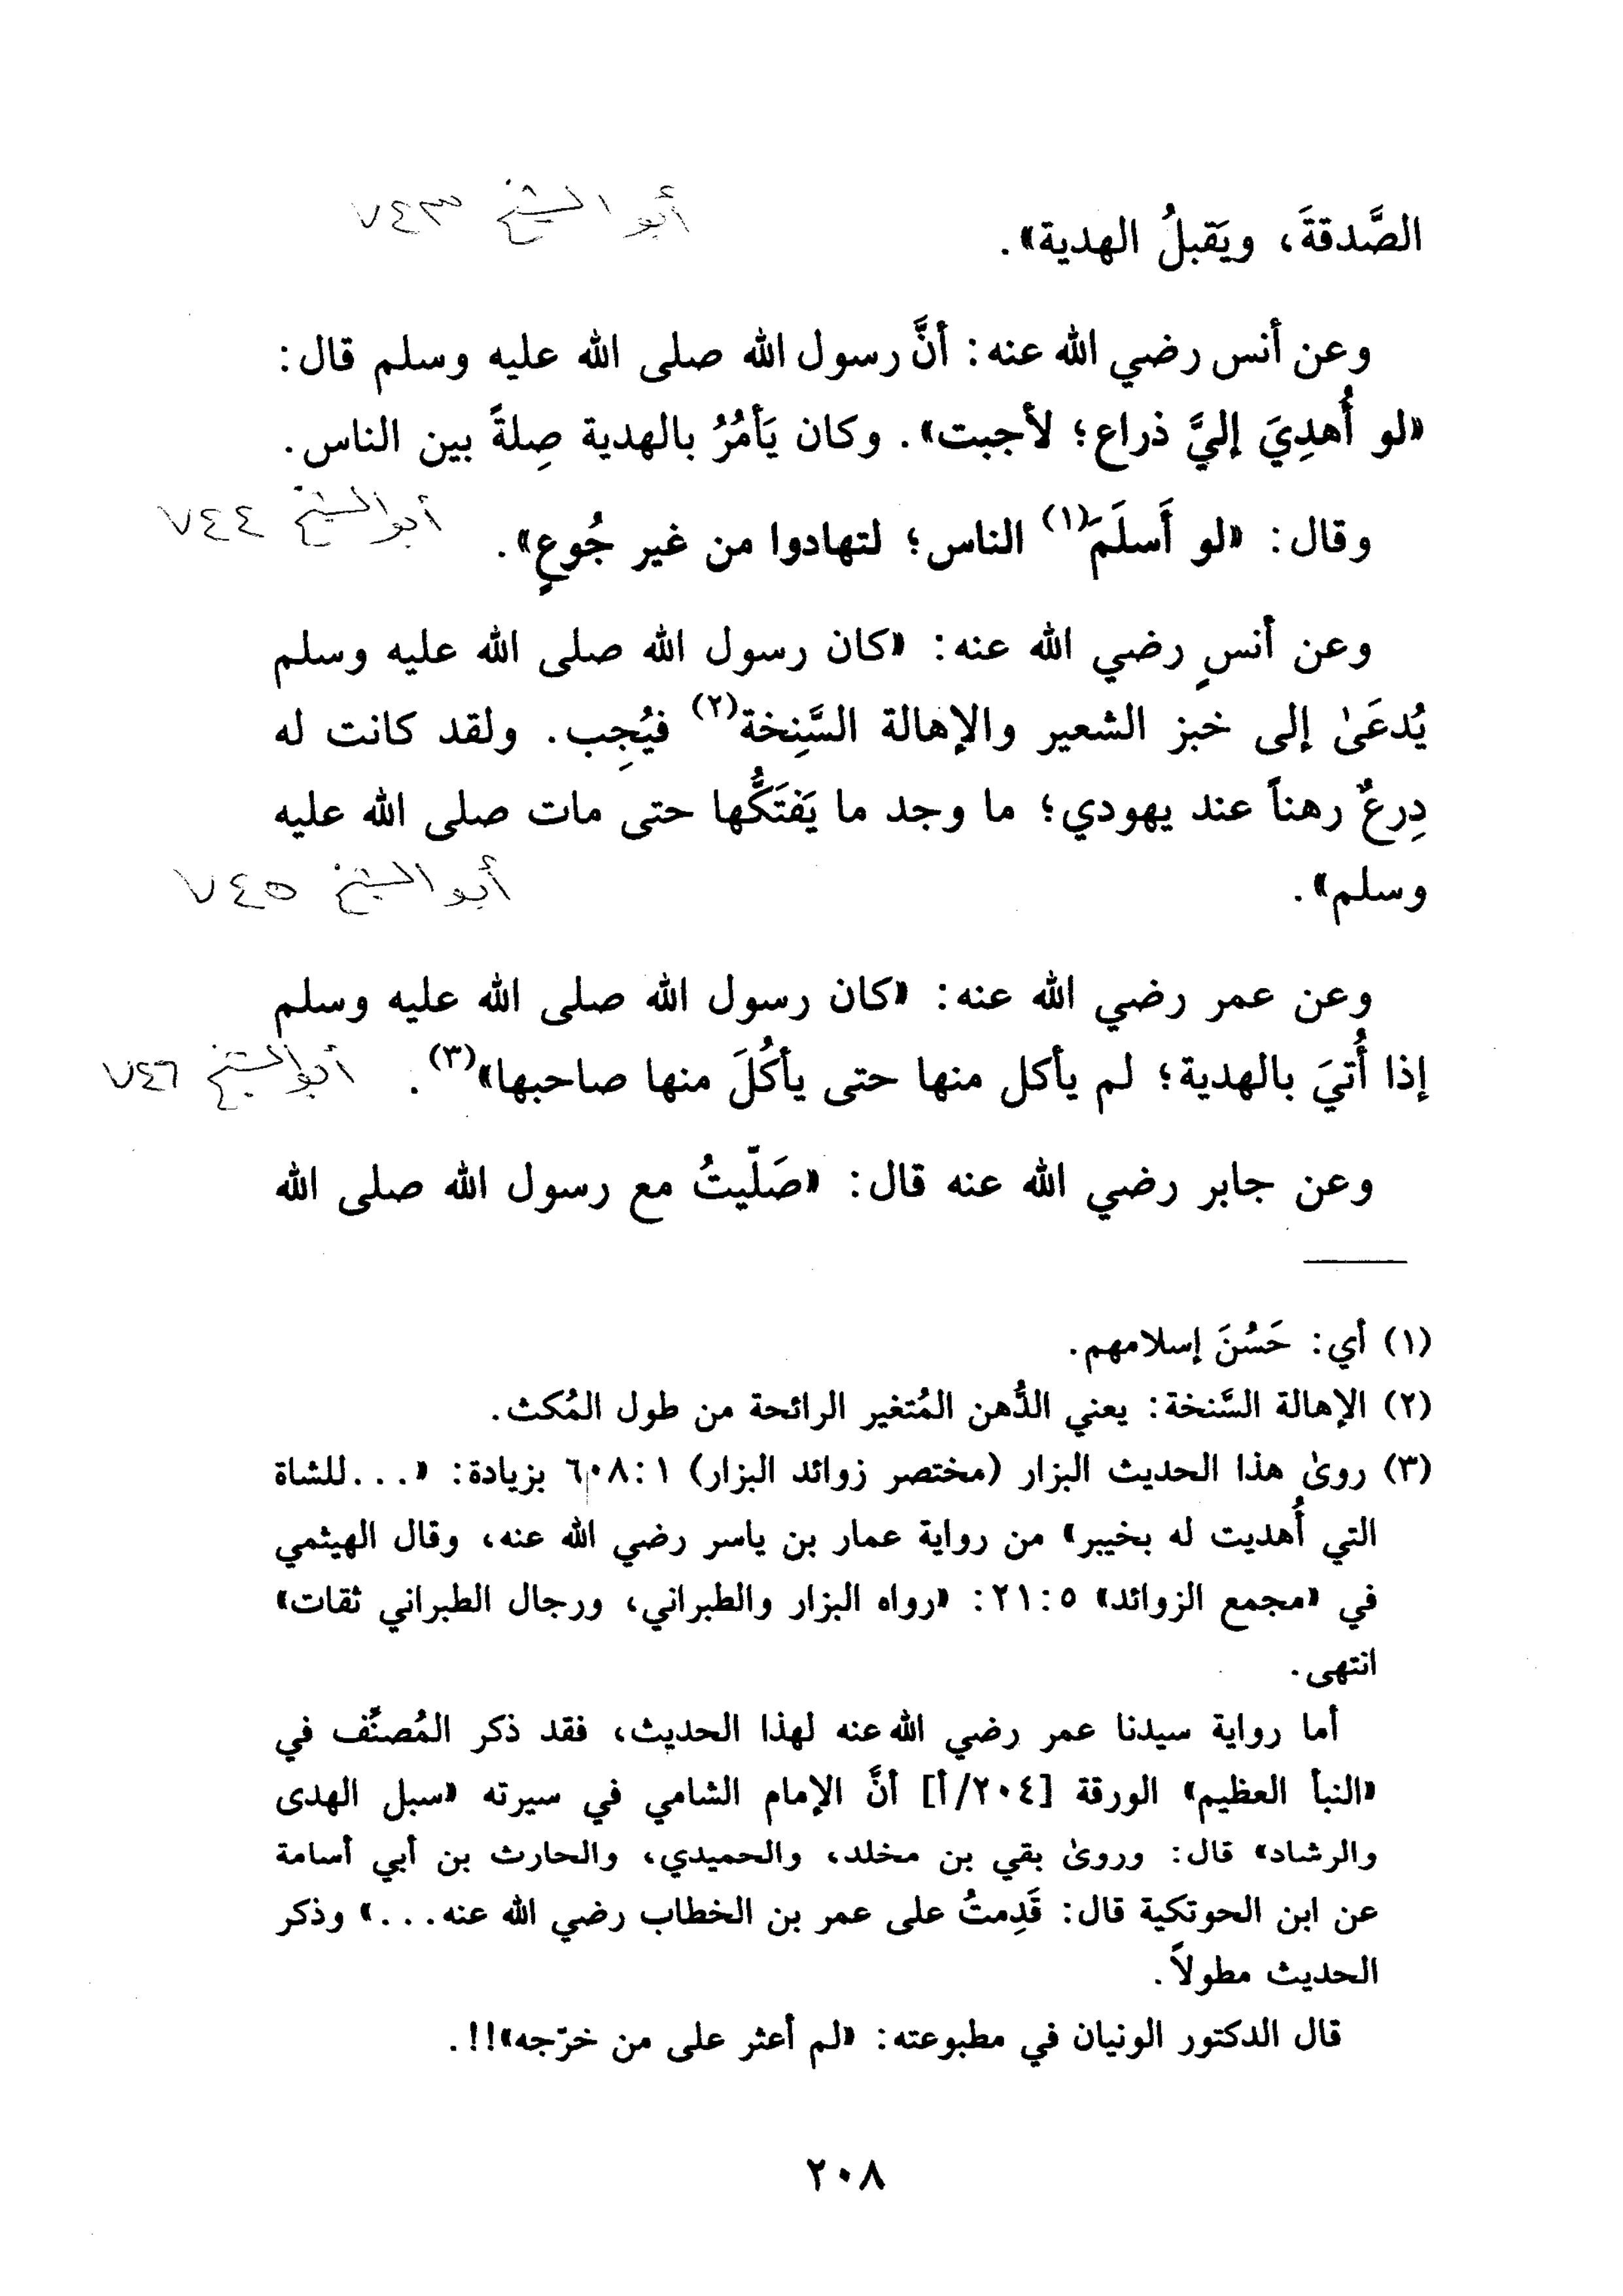 أبو الشيخ ٧٤٣
الصَّدقةَ، ويَقبلُ الهدية».
وعن أنس رضي الله عنه: أنَّ رسول الله صلى الله عليه وسلم قال:
«لو أُهدِيَ إليَّ ذراع؛ لأجبت». وكان يَأمُرُ بالهدية صِلةً بين الناس.
أبو الشيخ ٧٤٤
وقال: «لو أَسلَمَ(١) الناس؛ لتهادوا من غير جُوعٍ».
وعن أنسٍ رضي الله عنه: «كان رسول الله صلى الله عليه وسلم
يُدعَىٰ إلى خبز الشعير والإهالة السَّنِخة(٢) فيُجِب. ولقد كانت له
دِرعٌ رهناً عند يهودي؛ ما وجد ما يَفتَكُّها حتى مات صلى الله عليه
وسلم».
أبو الشيخ ٧٤٥
وعن عمر رضي الله عنه: «كان رسول الله صلى الله عليه وسلم
إذا أُتيَ بالهدية؛ لم يأكل منها حتى يأكُلَ منها صاحبها»(٣).
أبو الشيخ ٧٤٦
وعن جابر رضي الله عنه قال: «صَلّيتُ مع رسول الله صلى الله
(١) أي: حَسُنَ إسلامهم.
(٢) الإهالة السَّنخة: يعني الدُّهن المُتغير الرائحة من طول المُكث.
(٣) روىٰ هذا الحديث البزار (مختصر زوائد البزار) ١:٦٠٨ بزيادة: «...للشاة
التي أُهديت له بخيبر» من رواية عمار بن ياسر رضي الله عنه، وقال الهيثمي
في «مجمع الزوائد» ٥:٢١: «رواه البزار والطبراني، ورجال الطبراني ثقات»
انتهى.
أما رواية سيدنا عمر رضي الله عنه لهذا الحديث، فقد ذكر المُصنِّف في
«النبأ العظيم» الورقة [٢٠٤/أ] أنَّ الإمام الشامي في سيرته «سبل الهدى
والرشاد» قال: وروىٰ بقي بن مخلد، والحميدي، والحارث بن أبي أسامة
عن ابن الحوتكية قال: قَدِمتُ على عمر بن الخطاب رضي الله عنه...» وذكر
الحديث مطولاً.
قال الدكتور الونيان في مطبوعته: «لم أعثر على من خرّجه»!!.
٢٠٨